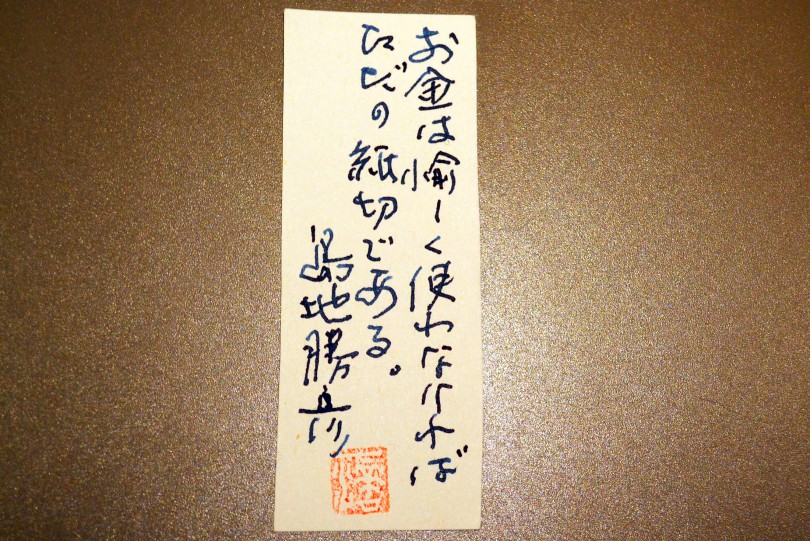 お金は愉しく使わなければ
ただの紙切である。
島地勝彦